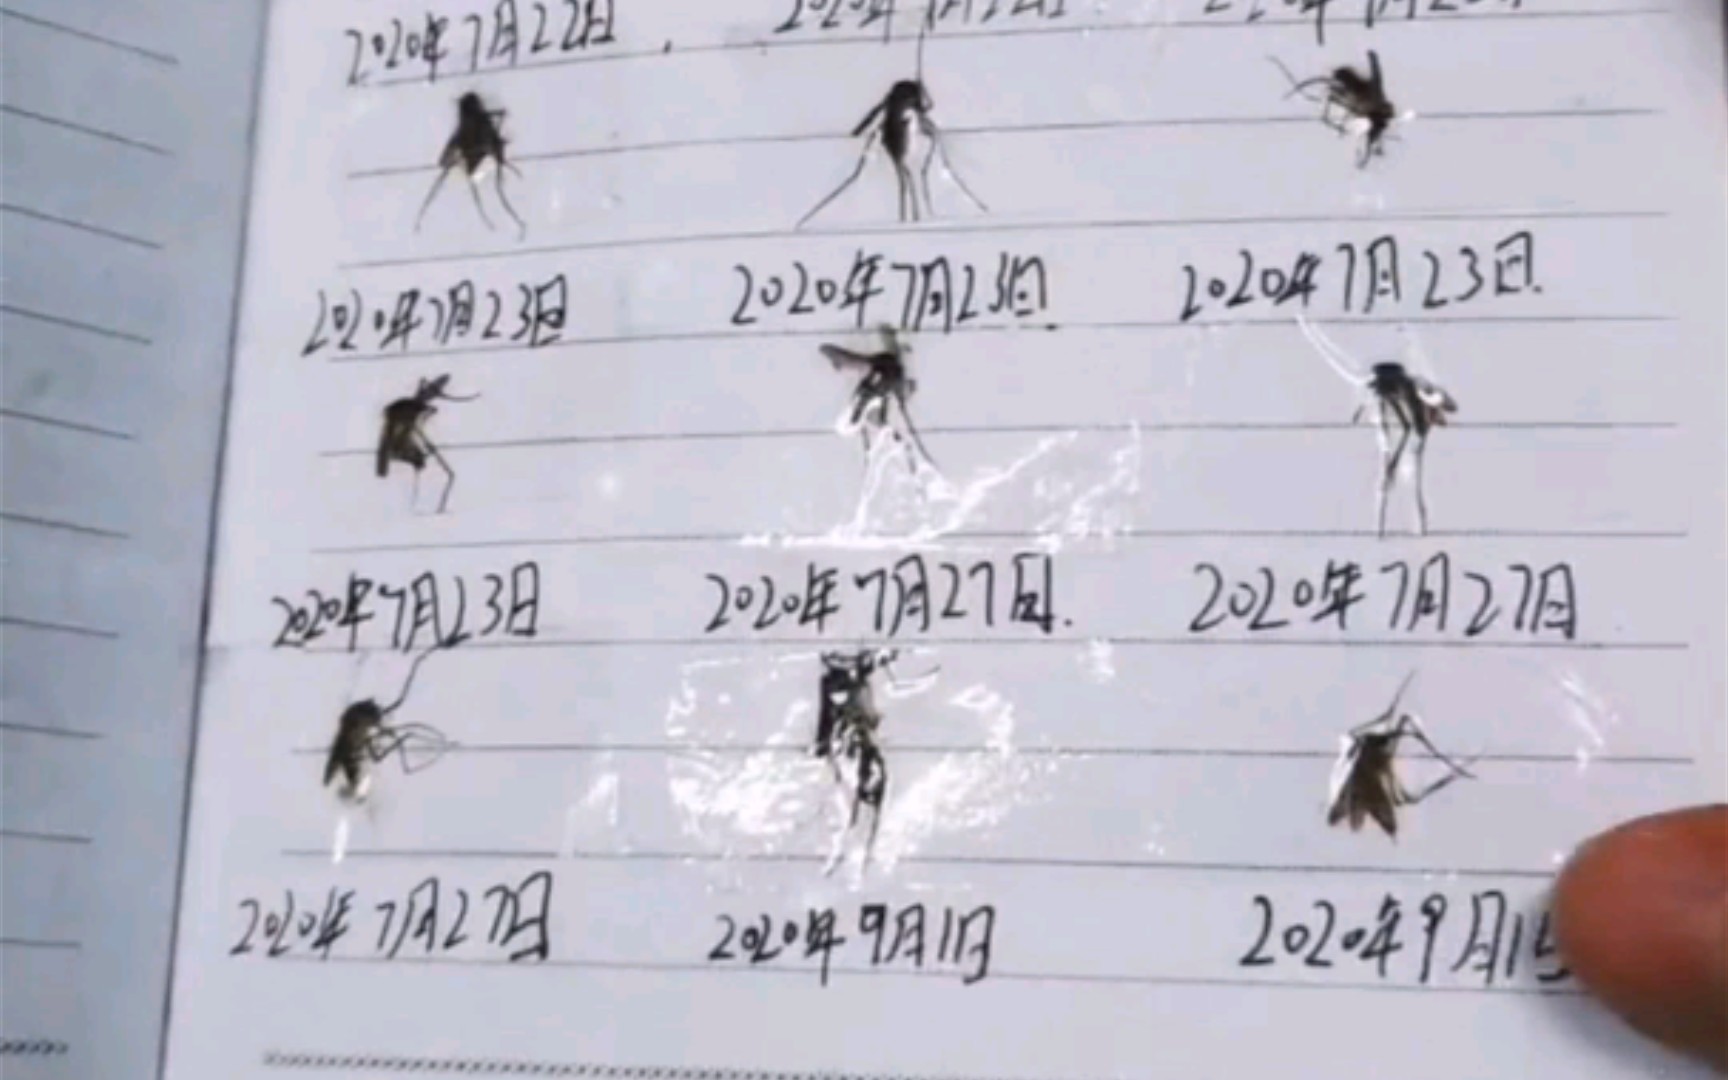 2020年7月22日. 2020年7月22日.
2020年7月23日 2020年7月23日. 2020年7月23日.
2020年7月23日 2020年7月27日. 2020年7月27日
2020年7月27日 2020年9月1日 2020年9月1日